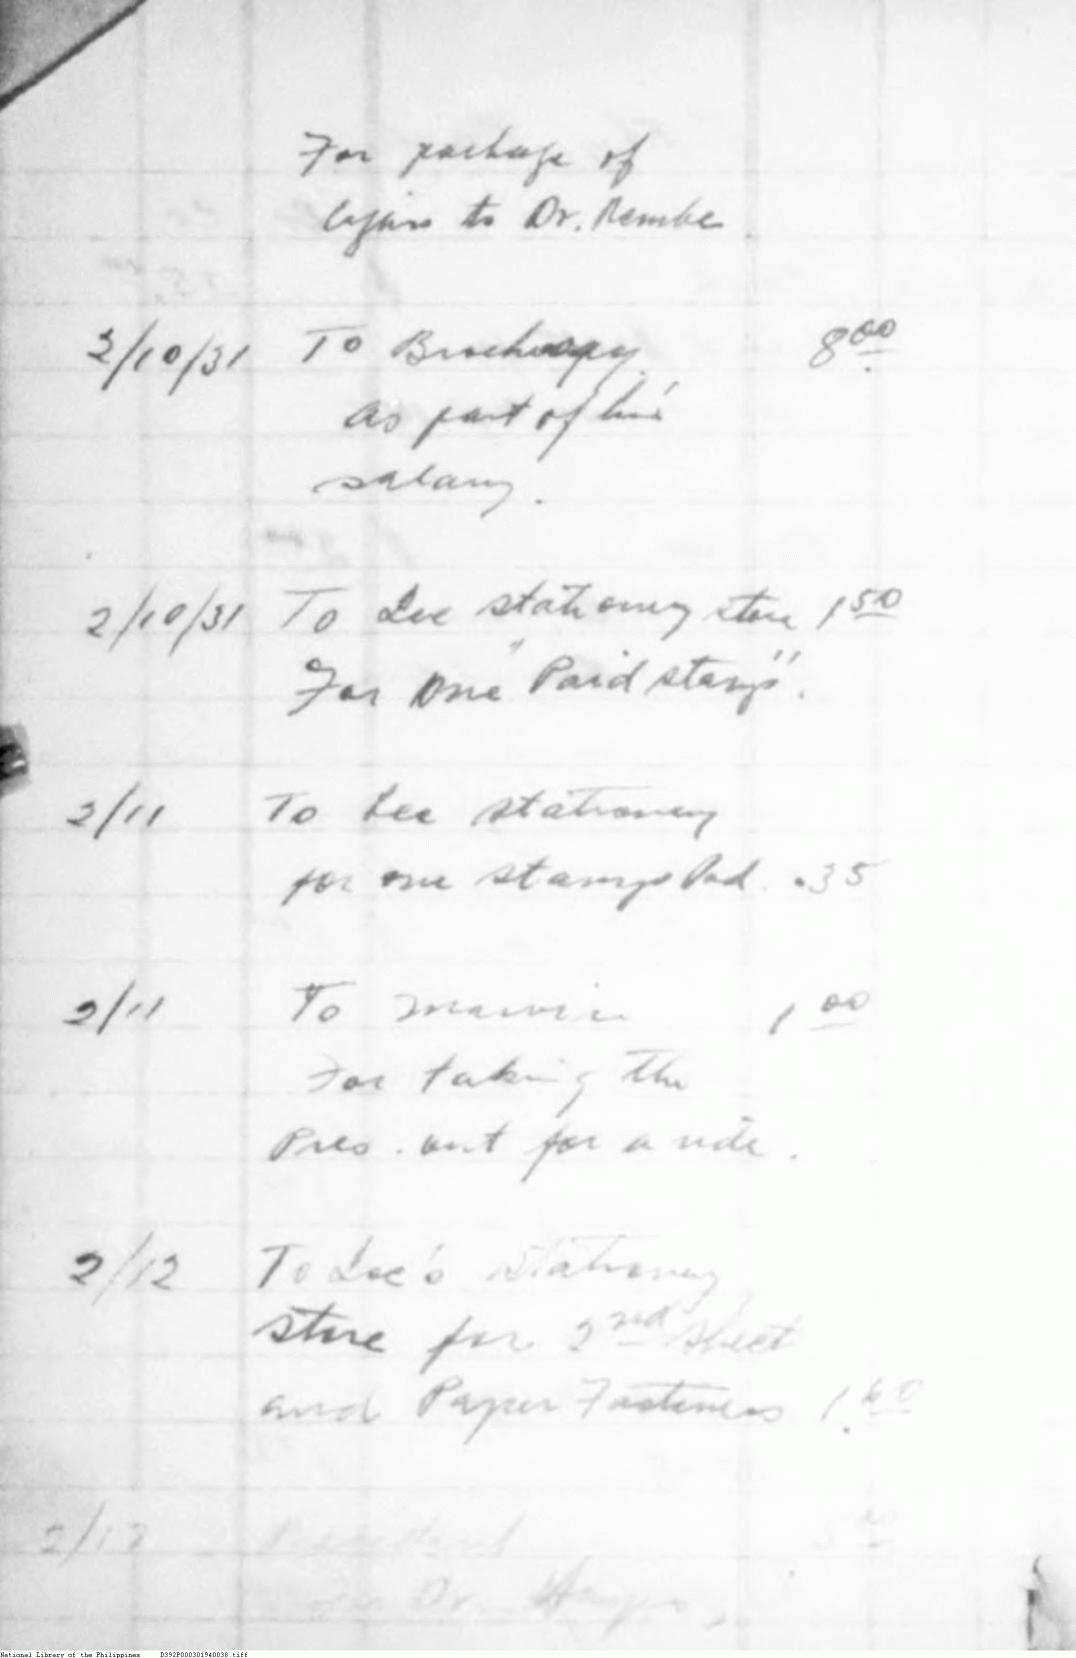 For package of
to Dr. Rembe
2/10/31 To 8 00
as part of his
salary.
2/10/31 To Lee stationery store 1 50
For one "Paid stamp".
2/11 To Lee stationery
for one stamp Pad. .35
2/11 To Marvin 1 00
For taking the
Pres. out for a ride.
2/12 To Lee's stationery
store for 2nd sheet
and Paper Fasteners 1.60
2/12
For Dr.
National Library of the Philippines D392P000301940038.tiff